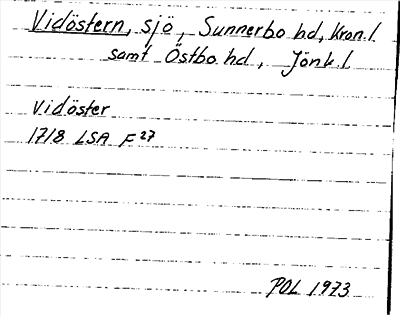 Vidöstern, sjö, Sunnerbo hd, Kron. l.
samt Östbo hd, Jönk. l
Vidöster
1718 LSA F 27
POL 1973